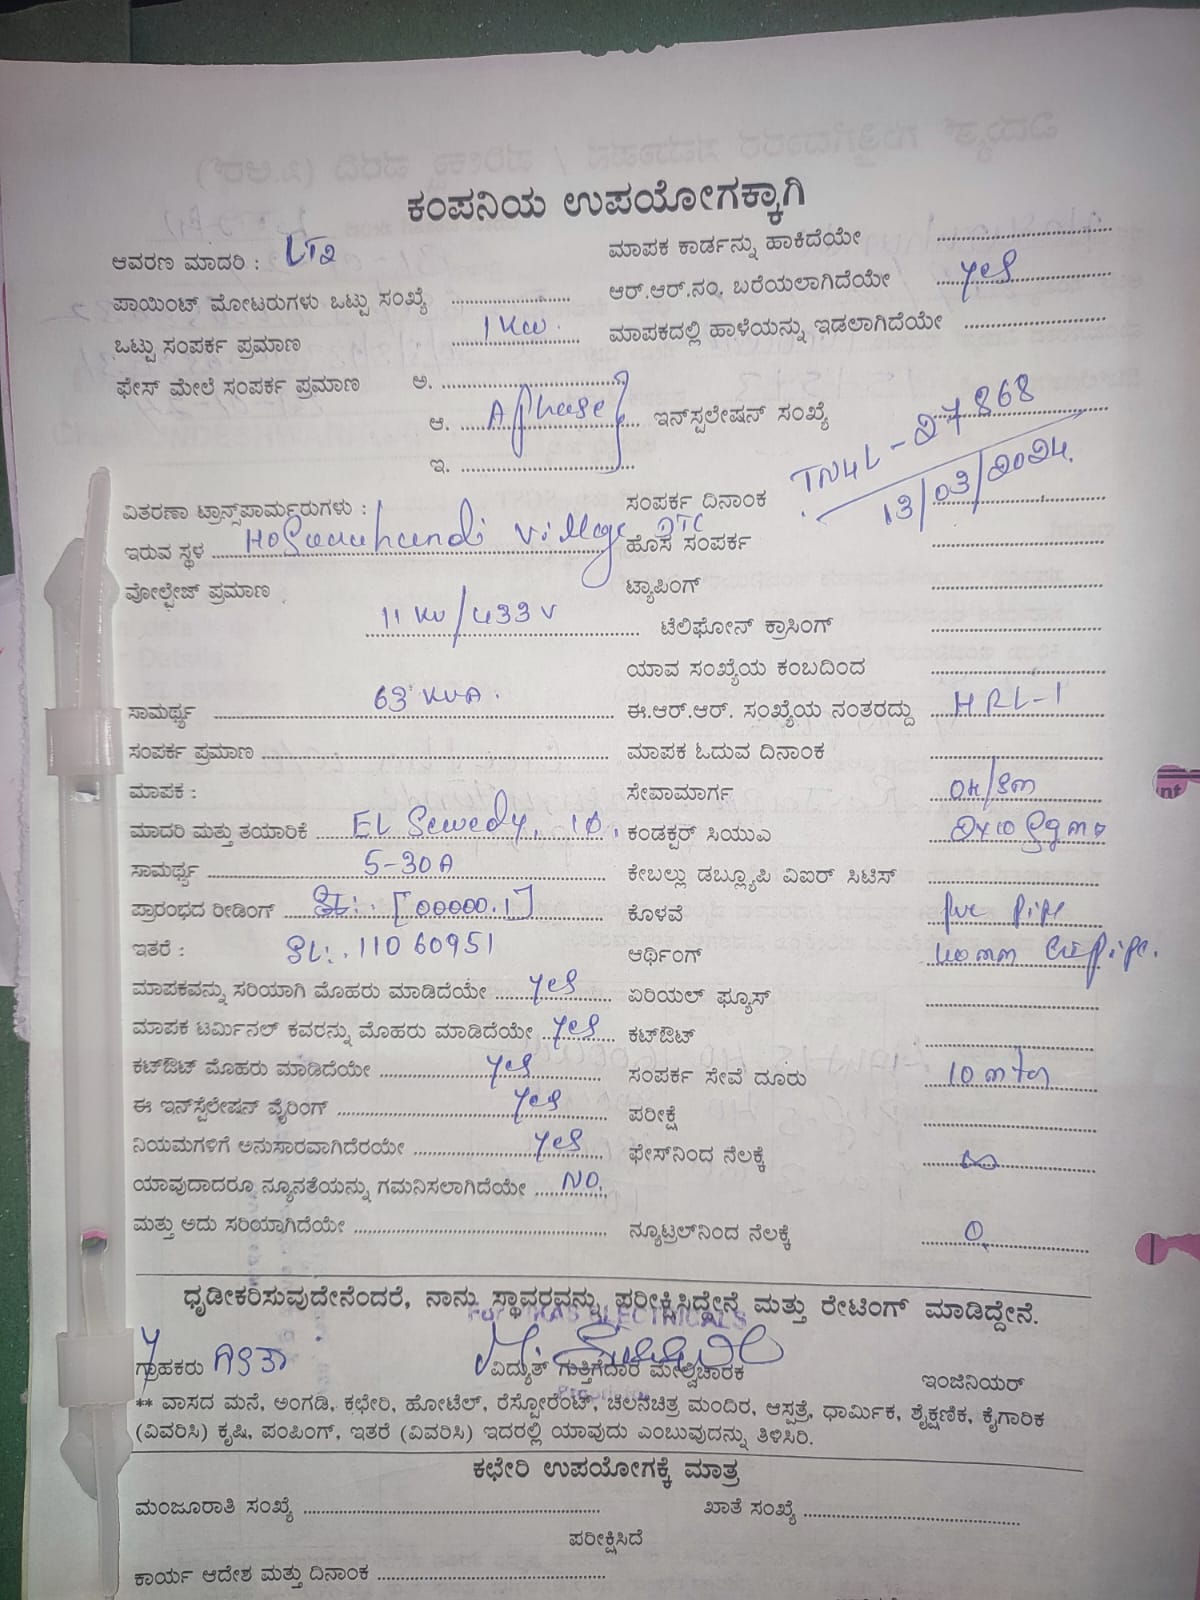 ಕಂಪನಿಯ ಉಪಯೋಗಕ್ಕಾಗಿ
ಆವರಣ ಮಾದರಿ : LT2
ಪಾಯಿಂಟ್ ಮೋಟರುಗಳು ಒಟ್ಟು ಸಂಖ್ಯೆ
ಒಟ್ಟು ಸಂಪರ್ಕ ಪ್ರಮಾಣ 1 KW
ಫೇಸ್ ಮೇಲೆ ಸಂಪರ್ಕ ಪ್ರಮಾಣ ಅ.
ಆ. A phase
ಇ.
ಮಾಪಕ ಕಾರ್ಡನ್ನು ಹಾಕಿದೆಯೇ
ಆರ್.ಆರ್.ನಂ. ಬರೆಯಲಾಗಿದೆಯೇ Yes
ಮಾಪಕದಲ್ಲಿ ಹಾಳೆಯನ್ನು ಇಡಲಾಗಿದೆಯೇ
ಇನ್‌ಸ್ಪಲೇಷನ್ ಸಂಖ್ಯೆ TN4L-27868
ಸಂಪರ್ಕ ದಿನಾಂಕ 13/03/2024.
ವಿತರಣಾ ಟ್ರಾನ್ಸ್‌ಪಾರ್ಮರುಗಳು :
ಇರುವ ಸ್ಥಳ Village DTC
ವೋಲ್ಟೇಜ್ ಪ್ರಮಾಣ
11 KV/433 V
ಸಾಮರ್ಥ್ಯ 63 KVA.
ಸಂಪರ್ಕ ಪ್ರಮಾಣ
ಮಾಪಕ :
ಮಾದರಿ ಮತ್ತು ತಯಾರಿಕೆ EL Sewedy, 1Ø.
ಸಾಮರ್ಥ್ಯ 5-30A
ಪ್ರಾರಂಭದ ರೀಡಿಂಗ್ [00000.1]
ಇತರೆ : SL: 11060951
ಮಾಪಕವನ್ನು ಸರಿಯಾಗಿ ಮೊಹರು ಮಾಡಿದೆಯೇ Yes
ಮಾಪಕ ಟರ್ಮಿನಲ್ ಕವರನ್ನು ಮೊಹರು ಮಾಡಿದೆಯೇ Yes
ಕಟ್‌ಔಟ್ ಮೊಹರು ಮಾಡಿದೆಯೇ Yes
ಈ ಇನ್‌ಸ್ಪೆಲೇಷನ್ ವೈರಿಂಗ್ Yes
ನಿಯಮಗಳಿಗೆ ಅನುಸಾರವಾಗಿದೆರಯೇ Yes
ಯಾವುದಾದರೂ ನ್ಯೂನತೆಯನ್ನು ಗಮನಿಸಲಾಗಿದೆಯೇ NO.
ಮತ್ತು ಅದು ಸರಿಯಾಗಿದೆಯೇ
ಹೊಸ ಸಂಪರ್ಕ
ಟ್ಯಾಪಿಂಗ್
ಟೆಲಿಫೋನ್ ಕ್ರಾಸಿಂಗ್
ಯಾವ ಸಂಖ್ಯೆಯ ಕಂಬದಿಂದ
ಈ.ಆರ್.ಆರ್. ಸಂಖ್ಯೆಯ ನಂತರದ್ದು HRL-1
ಮಾಪಕ ಓದುವ ದಿನಾಂಕ
ಸೇವಾಮಾರ್ಗ OH/SM
ಕಂಡಕ್ಟರ್ ಸಿಯುಎ 2x10 Sqmm
ಕೇಬಲ್ಲು ಡಬ್ಲ್ಯೂಪಿ ವಿಐರ್ ಸಿಟಿಸ್
ಕೊಳವೆ pvc pipe
ಆರ್ಥಿಂಗ್ 40mm GI pipe.
ಏರಿಯಲ್ ಫ್ಯೂಸ್
ಕಟ್‌ಔಟ್
ಸಂಪರ್ಕ ಸೇವೆ ದೂರು 10 mtr
ಪರೀಕ್ಷೆ
ಫೇಸ್‌ನಿಂದ ನೆಲಕ್ಕೆ ∞
ನ್ಯೂಟ್ರಲ್‌ನಿಂದ ನೆಲಕ್ಕೆ 0.
ಧೃಡೀಕರಿಸುವುದೇನೆಂದರೆ, ನಾನು ಸ್ಥಾವರವನ್ನು ಪರೀಕ್ಷಿಸಿದ್ದೇನೆ ಮತ್ತು ರೇಟಿಂಗ್ ಮಾಡಿದ್ದೇನೆ.
For ELECTRICALS
ಗ್ರಾಹಕರು ವಿದ್ಯುತ್ ಗುತ್ತಿಗೆದಾರ ಮೇಲ್ವಿಚಾರಕ ಇಂಜಿನಿಯರ್
** ವಾಸದ ಮನೆ, ಅಂಗಡಿ, ಕಛೇರಿ, ಹೋಟೆಲ್, ರೆಸ್ಟೋರೆಂಟ್, ಚಲನಚಿತ್ರ ಮಂದಿರ, ಆಸ್ಪತ್ರೆ, ಧಾರ್ಮಿಕ, ಶೈಕ್ಷಣಿಕ, ಕೈಗಾರಿಕ
(ವಿವರಿಸಿ) ಕೃಷಿ, ಪಂಪಿಂಗ್, ಇತರೆ (ವಿವರಿಸಿ) ಇದರಲ್ಲಿ ಯಾವುದು ಎಂಬುವುದನ್ನು ತಿಳಿಸಿರಿ.
ಕಛೇರಿ ಉಪಯೋಗಕ್ಕೆ ಮಾತ್ರ
ಮಂಜೂರಾತಿ ಸಂಖ್ಯೆ ಖಾತೆ ಸಂಖ್ಯೆ
ಪರೀಕ್ಷಿಸಿದೆ
ಕಾರ್ಯ ಆದೇಶ ಮತ್ತು ದಿನಾಂಕ